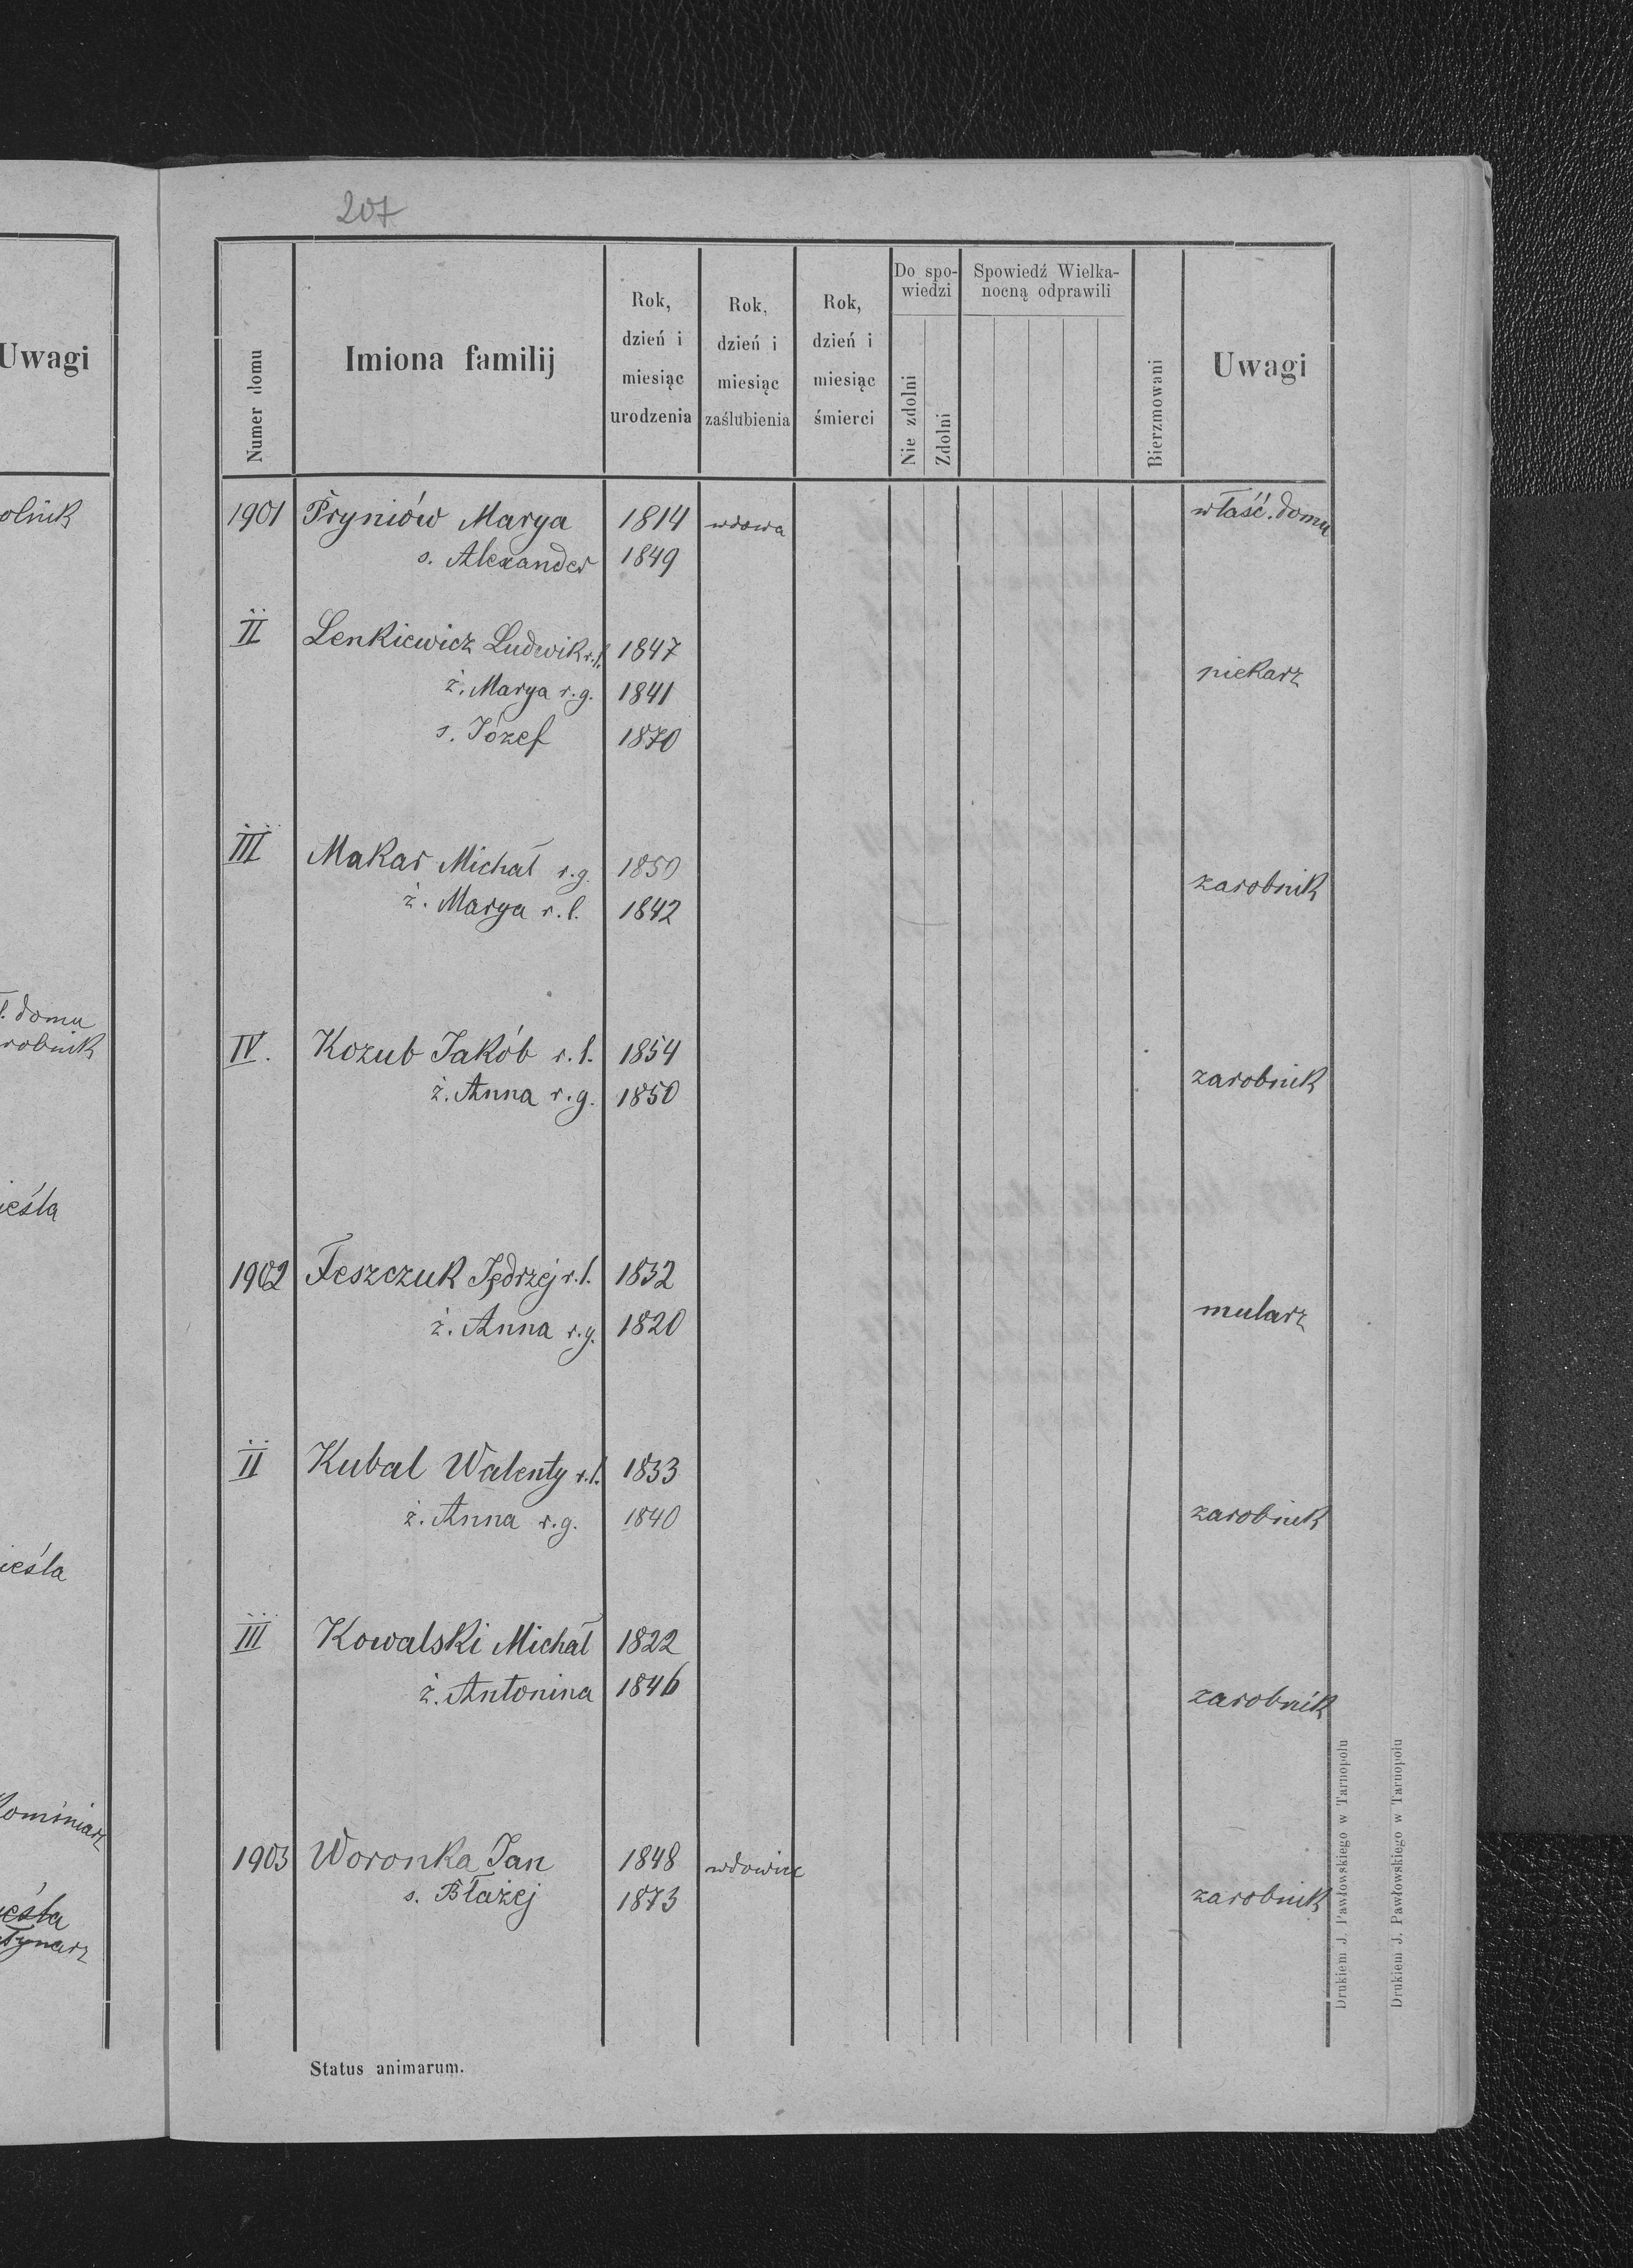 207
Uwagi
olnik
ł. domu
robnik
ieśla
ieśla
Kominiarz
ieśla
Numer domu
Imiona familij
Rok, dzień i miesiąc urodzenia
Rok, dzień i miesiąc zaślubienia
Rok, dzień i miesiąc śmierci
Do spowiedzi
Nie zdolni
Zdolni
Spowiedź Wielkanocną odprawili
Bierzmowani
Uwagi
1901 Pryniów Marya 1814 wdowa właść. domu
s. Alexander 1849
II Lenkiewicz Ludwik r.ł. 1847
piekarz
ż. Marya r.g. 1841
s. Józef 1870
III Makar Michał r.g. 1850
zarobnik
ż. Marya r.ł. 1842
IV. Kozub Jakób r.ł. 1854
zarobnik
ż. Anna r.g. 1850
1902 Feszczuk Jędrzej r.ł. 1832
mularz
ż. Anna r.g. 1820
II Kubal Walenty r.ł. 1833
ż. Anna r.g. 1840 zarobnik
III Kowalski Michał 1822
ż. Antonina 1846 zarobnik
1903 Woronka Jan 1848 wdowiec
s. Błażej 1873 zarobnik
Status animarum.
Drukiem J. Pawłowskiego w Tarnopolu
Drukiem J. Pawłowskiego w Tarnopolu